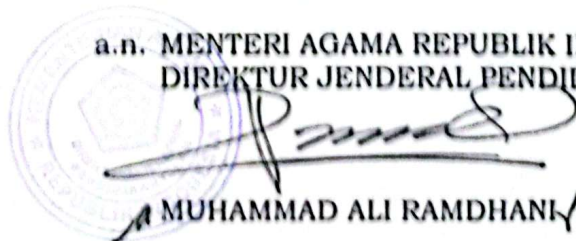 a.n. MENTERI AGAMA REPUBLIK I
DIREKTUR JENDERAL PENDI
MUHAMMAD ALI RAMDHANI